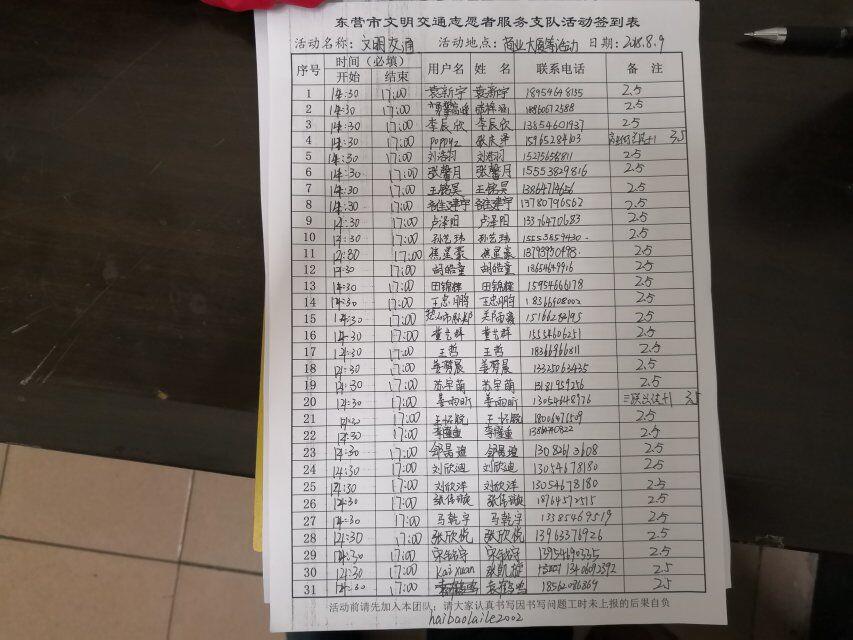 东营市文明交通志愿者服务支队活动签到表
活动名称: 文明交通 活动地点: 商业大厦等活动 日期: 2018.8.9
序号 时间（必填） 用户名 姓 名 联系电话 备 注
开始 结束
1 14:30 17:00 袁新宇 袁新宇 18954648135 2.5
2 14:30 17:00 2.5
3 14:30 17:00 李辰欣 李辰欣 13854601937 2.5
4 14:30 17:00 popyz 15965284103 3.5
5 14:30 17:00 刘浩羽 刘浩羽 15275658811 2.5
6 14:30 17:00 张馨月 张馨月 15553829816 2.5
7 14:30 17:00 王锦昊 王锦昊 2.5
8 14:30 17:00 13780796562 2.5
9 14:30 17:00 卢泽阳 卢泽阳 13376470683 2.5
10 14:30 17:00 孙艺玮 孙艺玮 2.5
11 14:30 17:00 2.5
12 14:30 17:00 胡皓童 胡皓童 18654649916 2.5
13 14:30 17:00 田锦程 田锦程 15954666178 2.5
14 14:30 17:00 王忠鹏 王忠鹏 18366908002 2.5
15 14:30 17:00 2.5
16 14:30 17:00 董艺群 董艺群 15554606251 2.5
17 14:30 17:00 王哲 王哲 18366966811 2.5
18 14:30 17:00 13325063435 2.5
19 14:30 17:00 苏宇萌 苏宇萌 13181959256 2.5
20 14:30 17:00 姜雨昕 姜雨昕 13054648976 3.5
21 14:30 17:00 18006471509 2.5
22 14:30 17:00 2.5
23 14:30 17:00 13082613608 2.5
24 14:30 17:00 刘欣迪 刘欣迪 13054678180 2.5
25 14:30 17:00 刘欣洋 刘欣洋 13054678180 2.5
26 14:30 17:00 张伟璇 张伟璇 18764572515 2.5
27 14:30 17:00 马乾宇 马乾宇 13385469519 2.5
28 14:30 17:00 张欣悦 张欣悦 13963376926 2.5
29 14:30 17:00 宋铭宇 宋铭宇 13954690335 2.5
30 14:30 17:00 kaixuan 张凯旋 13406092392 2.5
31 14:30 17:00 18562086869 2.5
活动前请先加入本团队; 请大家认真书写因书写问题工时未上报的后果自负
haibaolaile2002